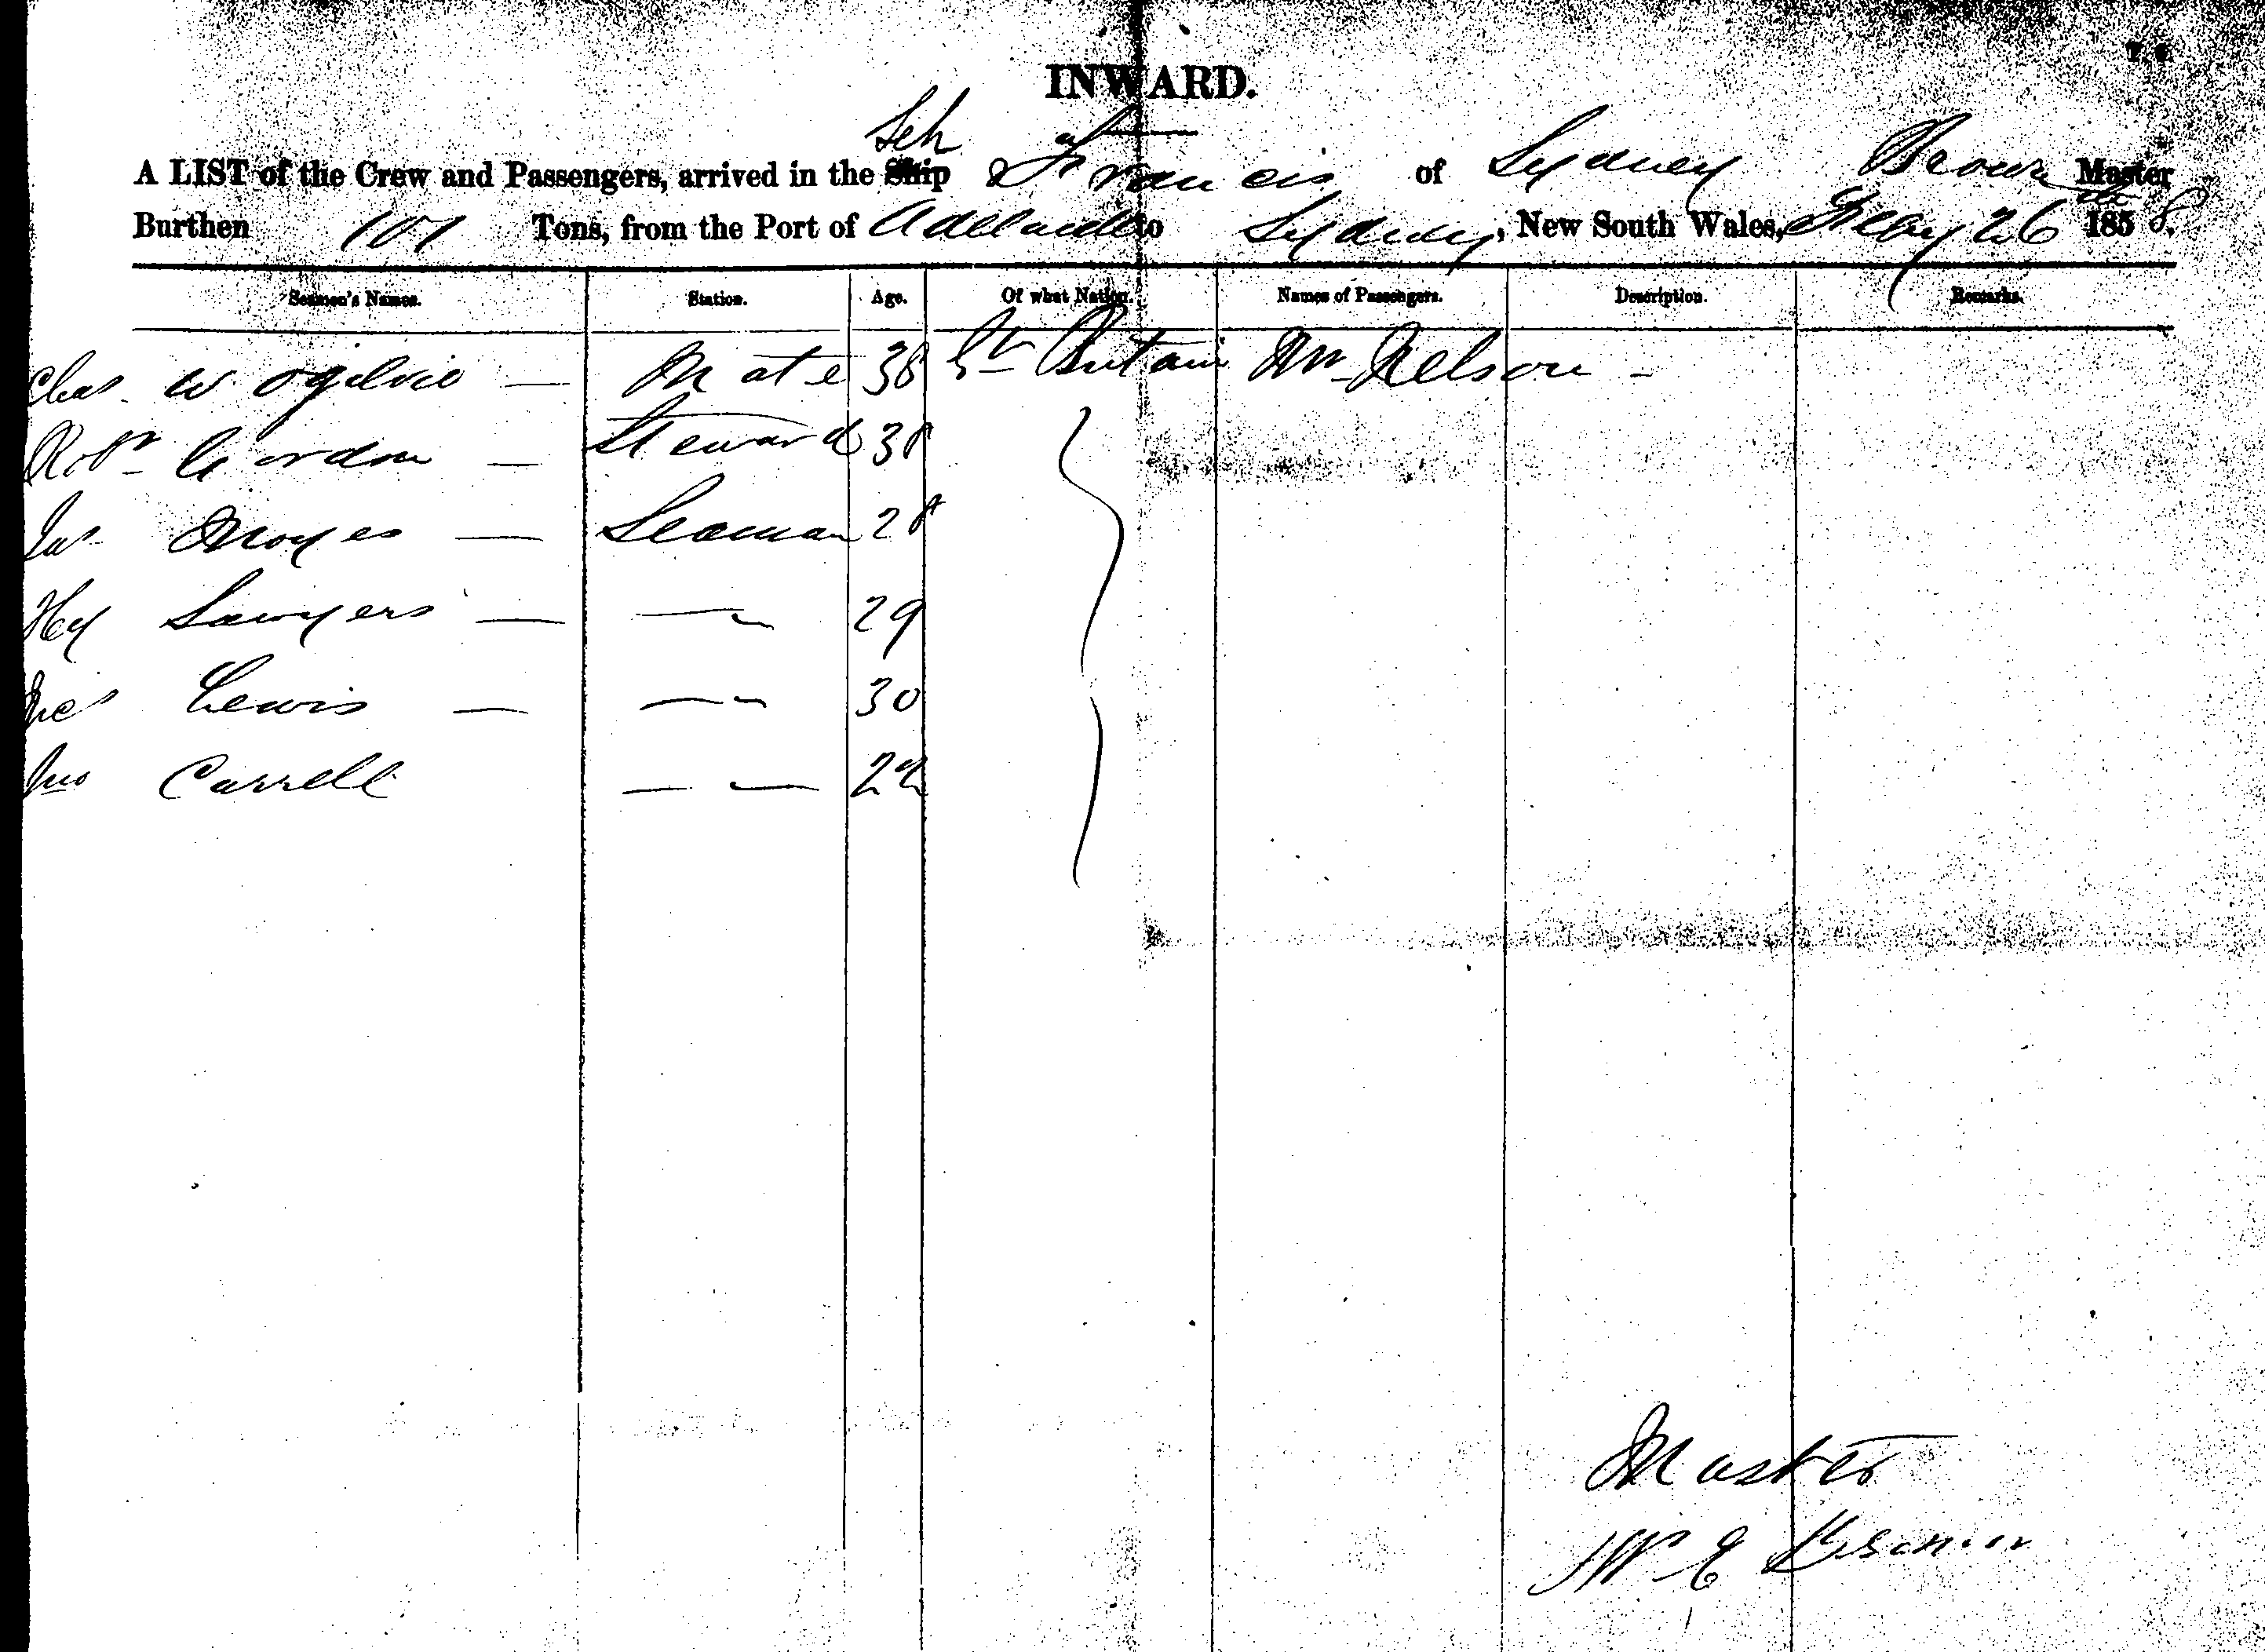 INWARD.
A LIST of the Crew and Passengers, arrived in the Ship Sch Francis of Sydney Brown Master
Burthen 101 Tons, from the Port of Adelaide to Sydney, New South Wales, 26th 1858.
Seamen's Names. Station. Age. Of what Nation. Names of Passengers. Description. Remarks.
Chas W Ogilvie — Mate 38 Gt Britain Mr Nelson -
Robt Gordon — Steward 38
Jas Moyes — Seaman 28
Hy Sawyers — — 29
Lewis — — 30
Jno Carrell — — 22
Master
W E